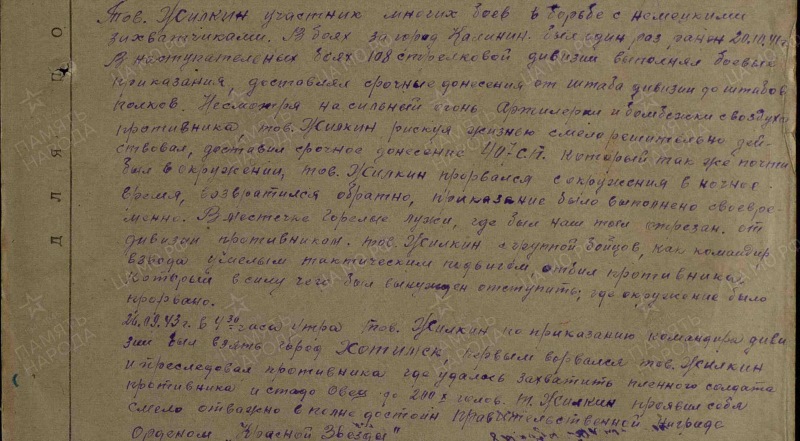 Тов. Жилкин участник многих боев в борьбе с немецкими
захватчиками. В боях за город Калинин был один раз ранен 20.10.41 г.
В наступательных боях 108 стрелковой дивизии выполнял боевые
приказания, доставлял срочные донесения от штаба дивизии до штабов
полков. Несмотря на сильный огонь Артилерии и бомбежки с воздуха
противника, тов. Жилкин рискуя жизнью смело решительно дей-
ствовал, доставил срочное донесение 407 С.П. который так же почти
был в окружении, тов. Жилкин прорвался с окружения в ночное
время, возвратился обратно, приказание было выполнено своевре-
менно. В местечке горелые лужи, где был наш отрезан от
дивизии противником. тов. Жилкин с группой бойцов, как командир
взвода умелым тактическим подвигом отбил противника,
который в силу чего был вынужден отступить, где окружение было
прорвано.
26.09.43 г. в 4 30 часа утра тов. Жилкин по приказанию командира диви
зии был взять город Хотимск, первым ворвался тов. Жилкин
и преследовал противника где удалось захватить пленного солдата
противника и стадо Овец до 200 голов. т. Жилкин проявил себя
смело отважно вполне достоин Правительственной Награде
Орденом "Красной Звезды"
ДЛЯ ПО
ПАМЯТЬ НАРОДА